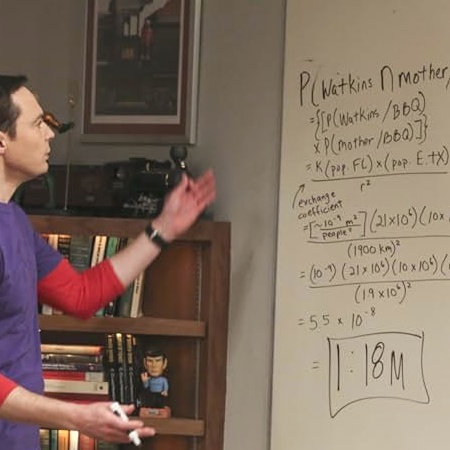 P(Watkins ∩ mother/
={[P(Watkins/BBQ)
x P(mother/BBQ)]}
= K(pop. FL) x (pop. E.TX)
r²
exchange
coefficient
=[~10⁻⁹ m²/people²] (21x10⁶) (10x
(1900 km)²
=(10⁻⁹) (21x10⁶) (10x10⁶) (
(19x10⁶)²
= 5.5 x 10⁻⁸
= 1:18M